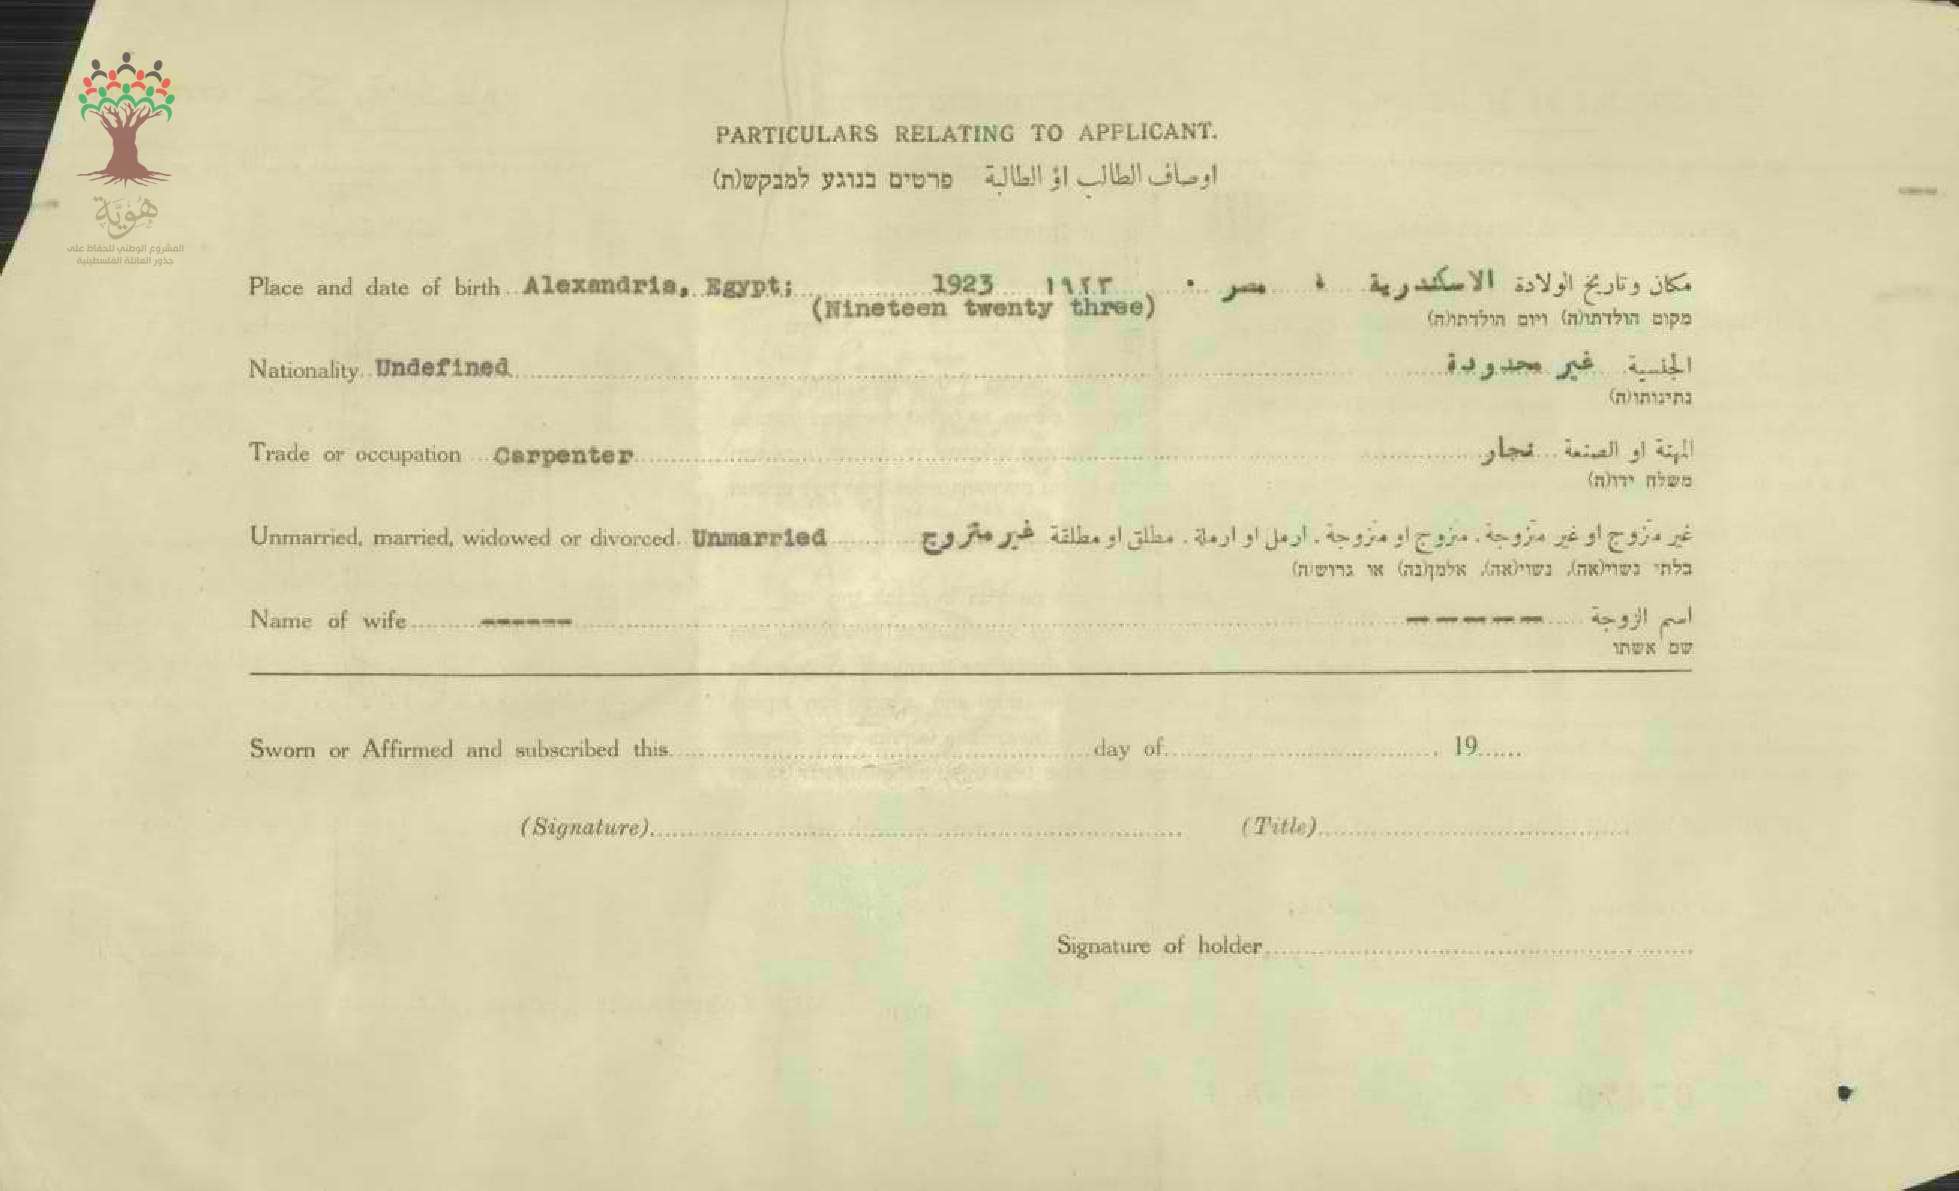 هُوِيَّة
المشروع الوطني للحفاظ على
جذور العائلة الفلسطينية
PARTICULARS RELATING TO APPLICANT.
اوصاف الطالب اؤ الطالبة פרטים בנוגע למבקש(ת)
Place and date of birth Alexandria, Egypt; 1923 ١٩٢٣ مصر ، الاسكندرية مكان وتاريخ الولادة
(Nineteen twenty three)
מקום הולדתו(ה) ויום הולדתו(ה)
Nationality Undefined الجنسية غير محدودة
נתינותו(ה)
Trade or occupation Carpenter المهنة او الصنعة نجار
משלח ידו(ה)
Unmarried, married, widowed or divorced. Unmarried غير متزوج او غير متزوجة، متزوج او متزوجة، ارمل او ارملة، مطلق او مطلقة غير متزوج
בלתי נשוי(אה), נשוי(אה), אלמן(נה) או גרוש(ה)
Name of wife ------ اسم الزوجة -----
שם אשתו
Sworn or Affirmed and subscribed this day of 19
(Signature) (Title)
Signature of holder